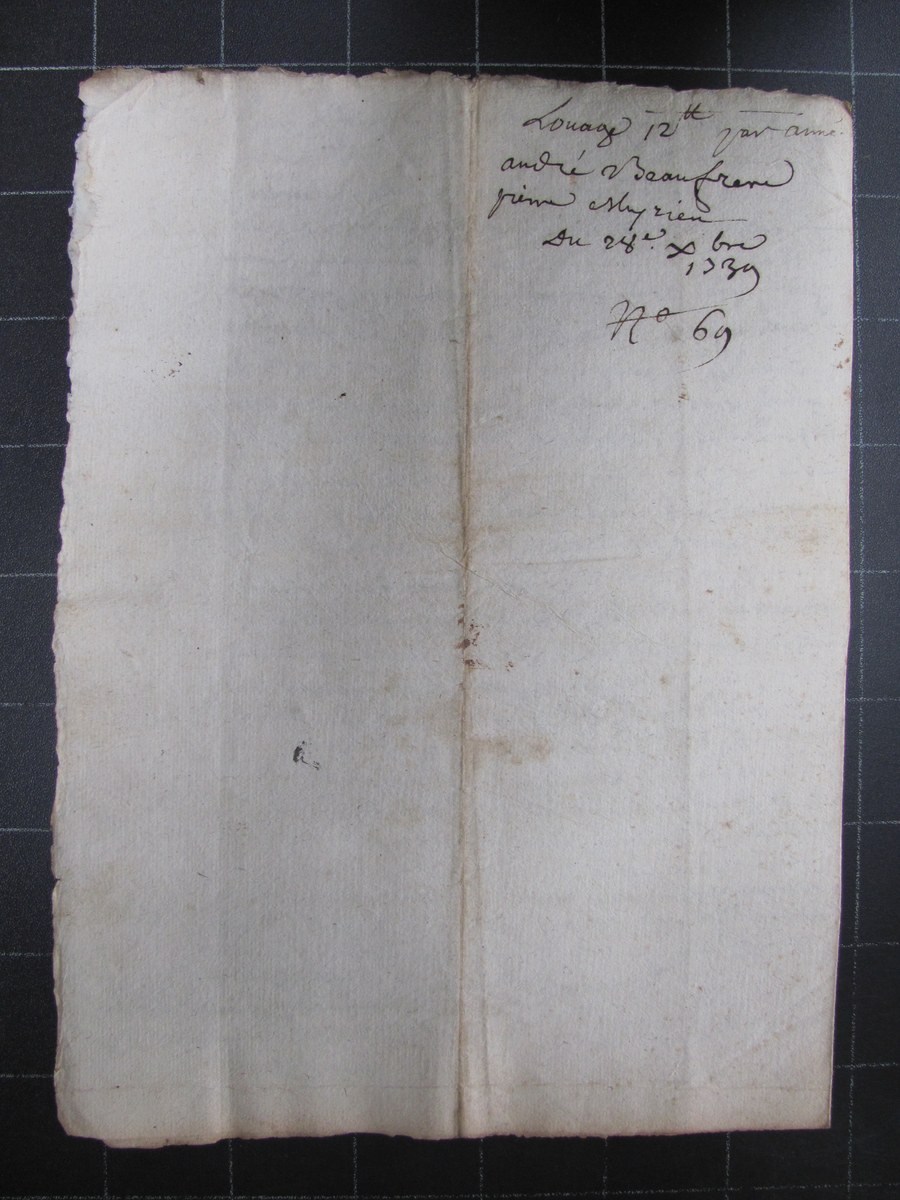 Louage 12ᵗᵗ par anne
andré Beaufrere
pierre Meyrieu
Du 28ᵉ. Xbre
1739
Nº 69